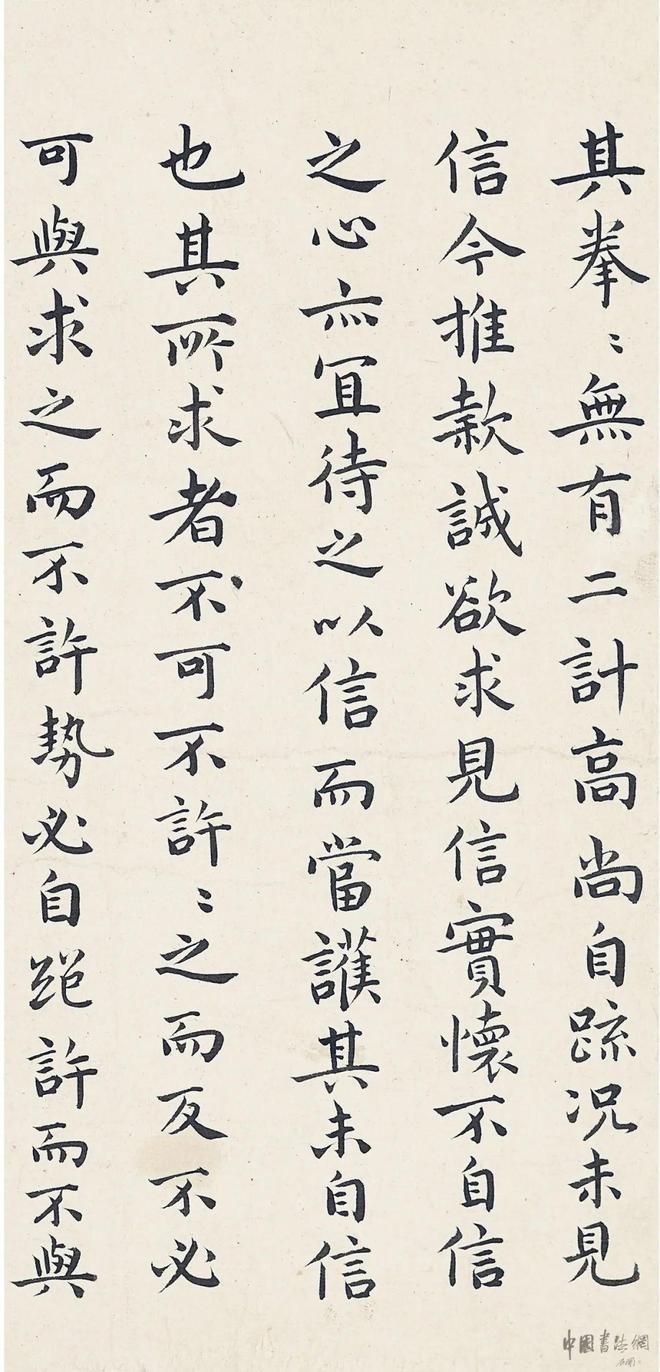 其拳〻無有二計高尚自踈况未見
信今推款誠欲求見信實懷不自信
之心亦宜待之以信而當護其未自信
也其所求者不可不許〻之而反不必
可與求之而不許勢必自絕許而不與
中國書法網